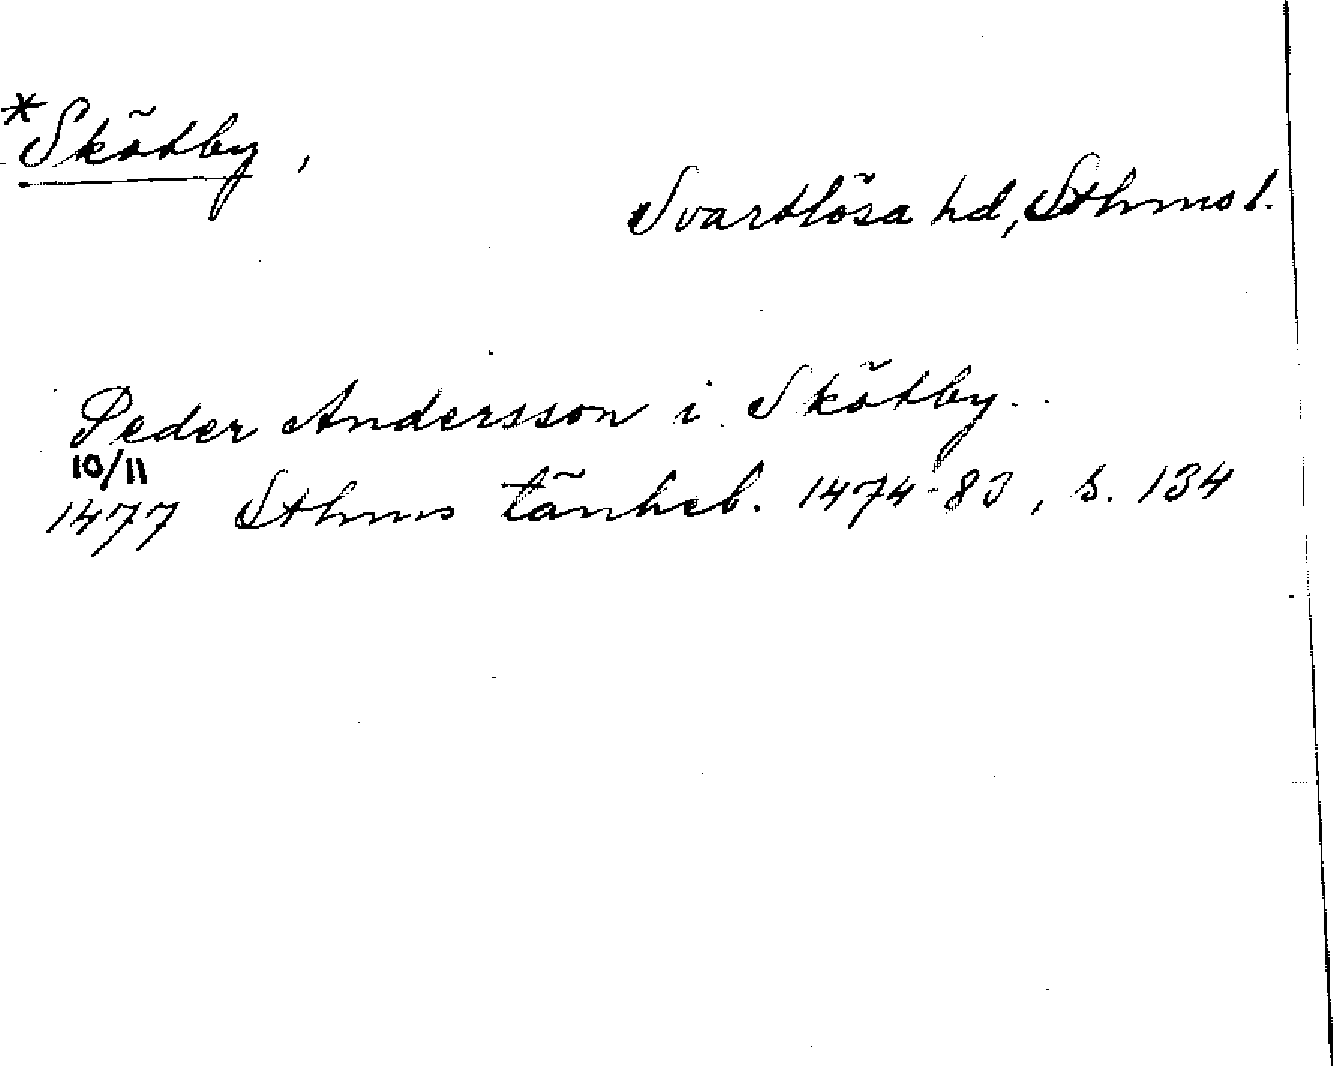 *Skötby,
Svartlösa hd, Sthms l.
Peder Andersson i Skötby
10/11
1477 Sthms tänkeb. 1474-83, s. 134